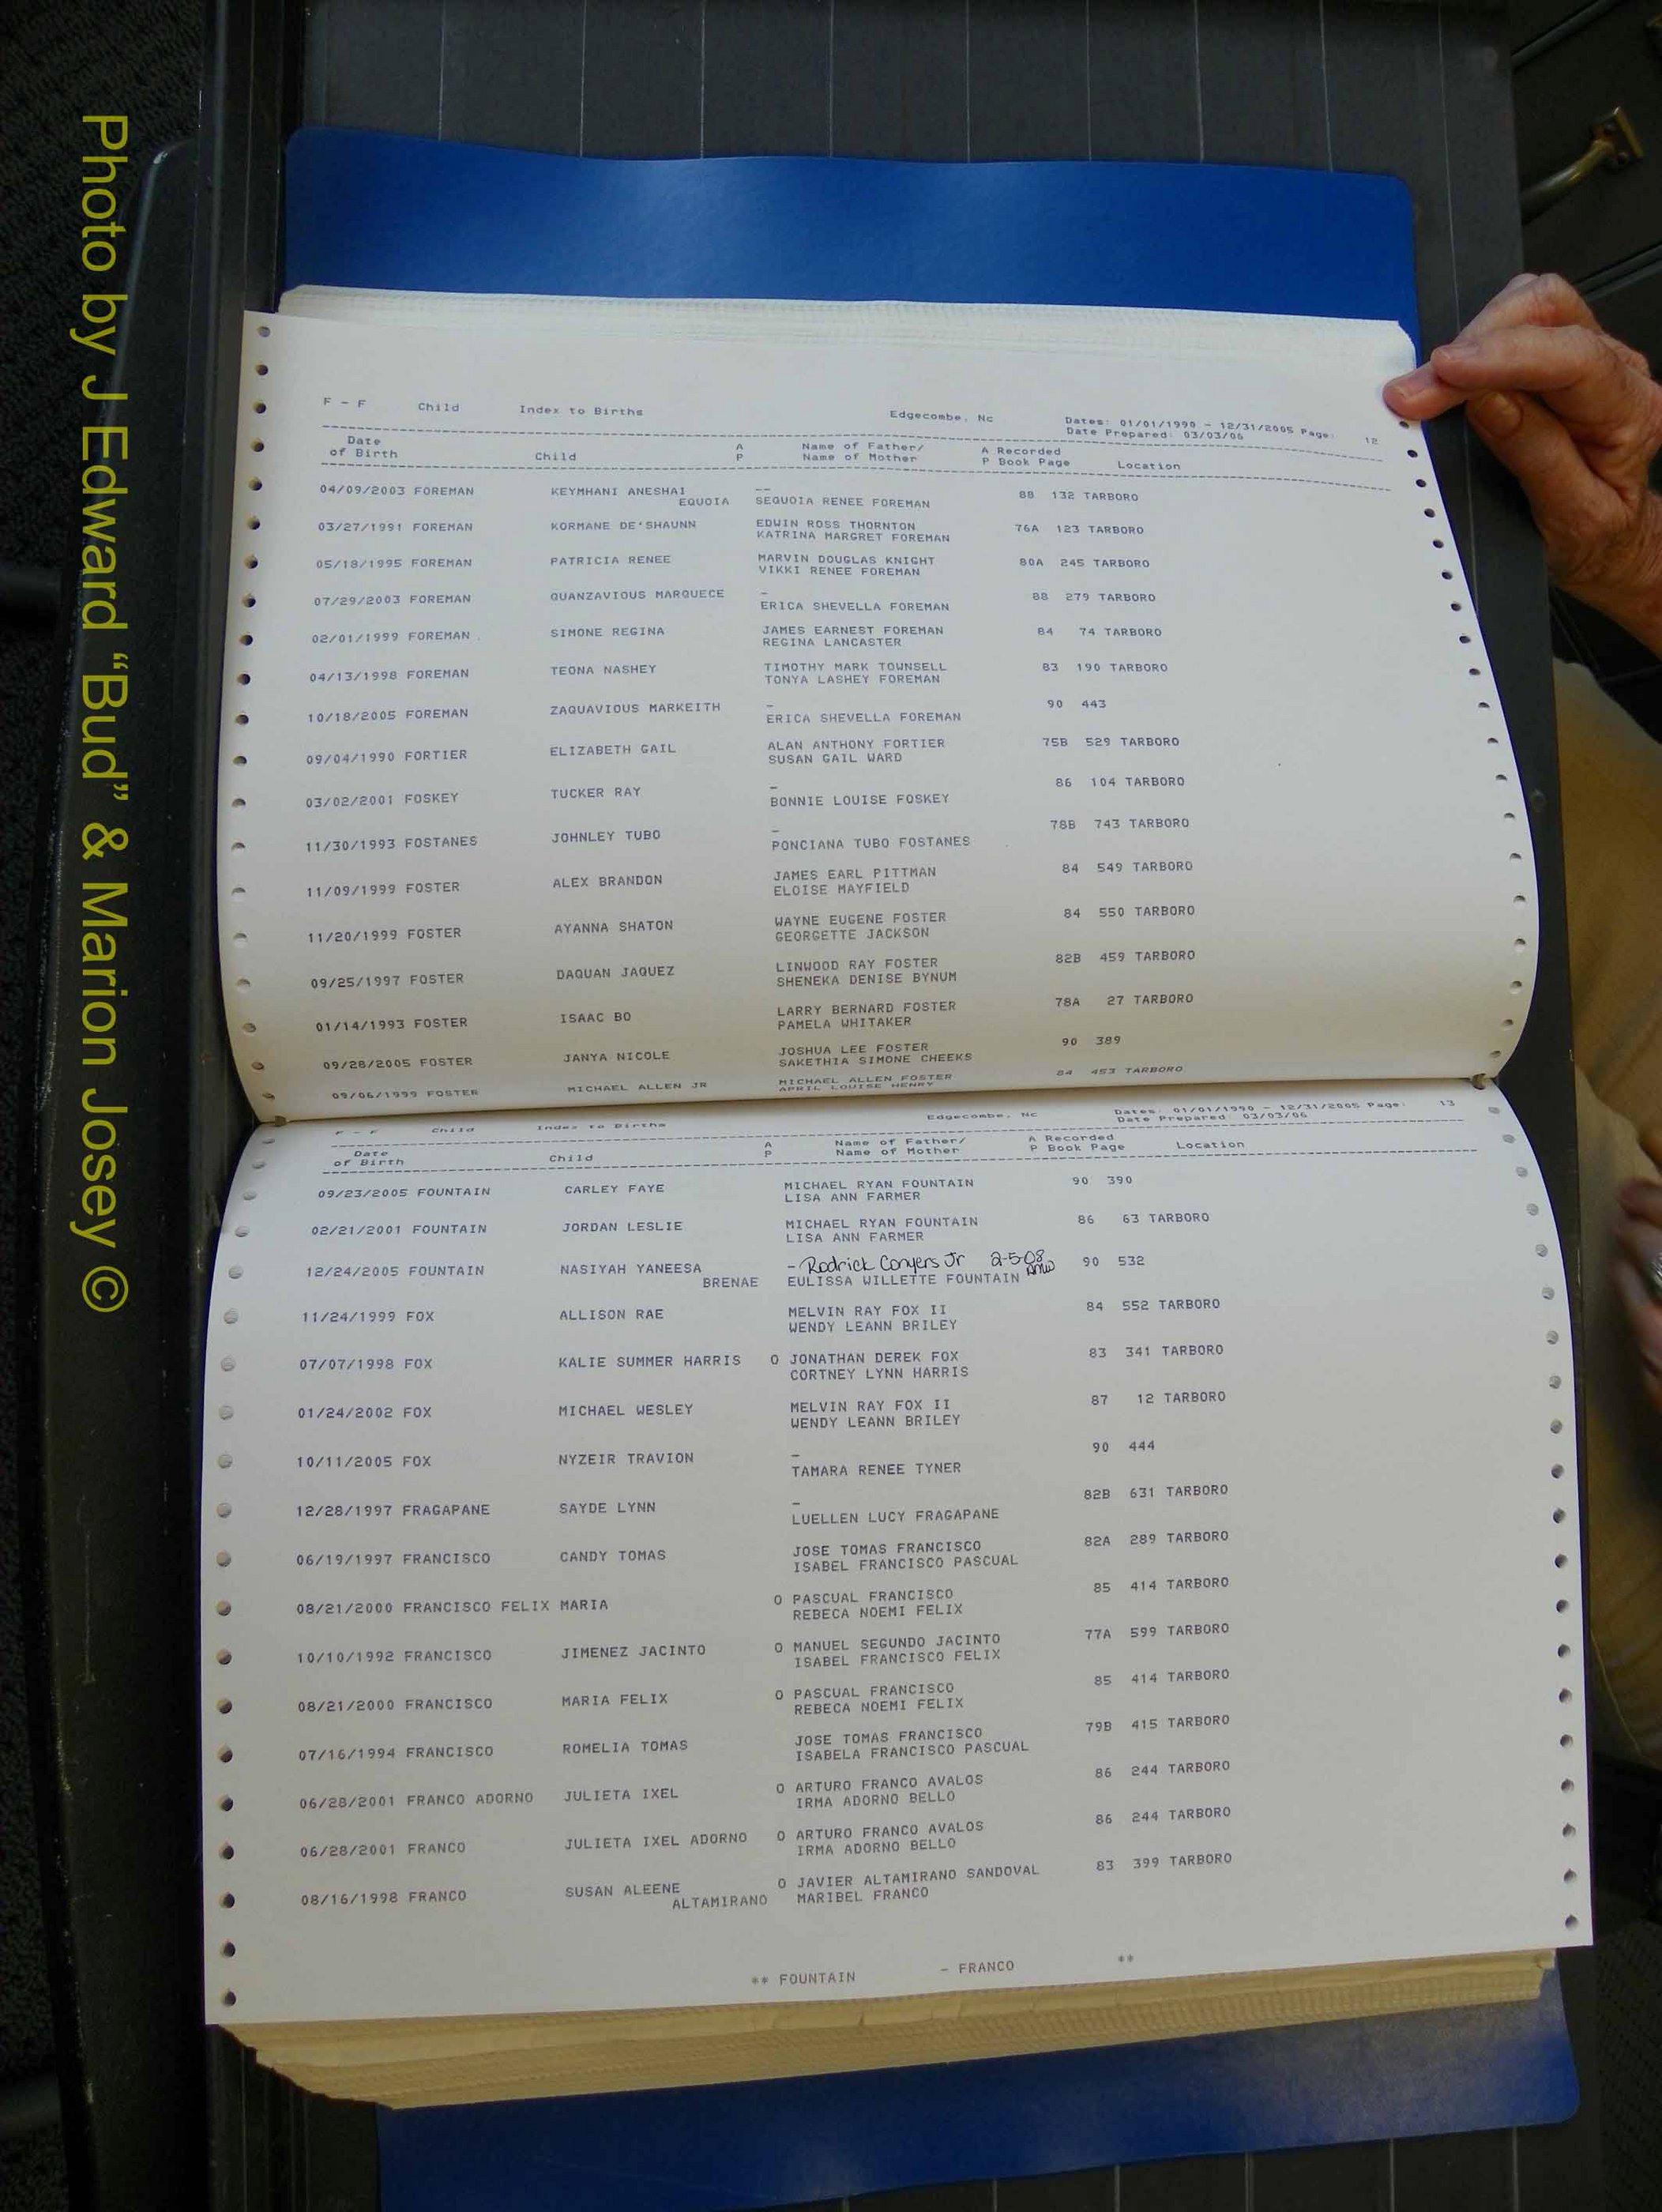 Photo by J Edward “Bud” & Marion Josey ©
F - F Child Index to Births Edgecombe, Nc Dates: 01/01/1990 - 12/31/2005 Page: 12
Date Prepared: 03/03/06
Date A Name of Father/ A Recorded
of Birth Child P Name of Mother P Book Page Location
04/09/2003 FOREMAN KEYMHANI ANESHAI -- 88 132 TARBORO
EQUOIA SEQUOIA RENEE FOREMAN
03/27/1991 FOREMAN KORMANE DE'SHAUNN EDWIN ROSS THORNTON 76A 123 TARBORO
KATRINA MARGRET FOREMAN
05/18/1995 FOREMAN PATRICIA RENEE MARVIN DOUGLAS KNIGHT 80A 245 TARBORO
VIKKI RENEE FOREMAN
07/29/2003 FOREMAN QUANZAVIOUS MARQUECE - 88 279 TARBORO
ERICA SHEVELLA FOREMAN
02/01/1999 FOREMAN SIMONE REGINA JAMES EARNEST FOREMAN 84 74 TARBORO
REGINA LANCASTER
04/13/1998 FOREMAN TEONA NASHEY TIMOTHY MARK TOWNSELL 83 190 TARBORO
TONYA LASHEY FOREMAN
10/18/2005 FOREMAN ZAQUAVIOUS MARKEITH - 90 443
ERICA SHEVELLA FOREMAN
09/04/1990 FORTIER ELIZABETH GAIL ALAN ANTHONY FORTIER 75B 529 TARBORO
SUSAN GAIL WARD
03/02/2001 FOSKEY TUCKER RAY - 86 104 TARBORO
BONNIE LOUISE FOSKEY
11/30/1993 FOSTANES JOHNLEY TUBO - 78B 743 TARBORO
PONCIANA TUBO FOSTANES
11/09/1999 FOSTER ALEX BRANDON JAMES EARL PITTMAN 84 549 TARBORO
ELOISE MAYFIELD
11/20/1999 FOSTER AYANNA SHATON WAYNE EUGENE FOSTER 84 550 TARBORO
GEORGETTE JACKSON
09/25/1997 FOSTER DAQUAN JAQUEZ LINWOOD RAY FOSTER 82B 459 TARBORO
SHENEKA DENISE BYNUM
01/14/1993 FOSTER ISAAC BO LARRY BERNARD FOSTER 78A 27 TARBORO
PAMELA WHITAKER
09/28/2005 FOSTER JANYA NICOLE JOSHUA LEE FOSTER 90 389
SAKETHIA SIMONE CHEEKS
09/06/1999 FOSTER MICHAEL ALLEN JR MICHAEL ALLEN FOSTER 84 453 TARBORO
APRIL LOUISE HENRY
F - F Child Index to Births Edgecombe, Nc Dates: 01/01/1990 - 12/31/2005 Page: 13
Date Prepared: 03/03/06
Date A Name of Father/ A Recorded
of Birth Child P Name of Mother P Book Page Location
09/23/2005 FOUNTAIN CARLEY FAYE MICHAEL RYAN FOUNTAIN 90 390
LISA ANN FARMER
02/21/2001 FOUNTAIN JORDAN LESLIE MICHAEL RYAN FOUNTAIN 86 63 TARBORO
LISA ANN FARMER
12/24/2005 FOUNTAIN NASIYAH YANEESA - Rodrick Conyers Jr 2-5-08 90 532
BRENAE EULISSA WILLETTE FOUNTAIN
11/24/1999 FOX ALLISON RAE MELVIN RAY FOX II 84 552 TARBORO
WENDY LEANN BRILEY
07/07/1998 FOX KALIE SUMMER HARRIS O JONATHAN DEREK FOX 83 341 TARBORO
CORTNEY LYNN HARRIS
01/24/2002 FOX MICHAEL WESLEY MELVIN RAY FOX II 87 12 TARBORO
WENDY LEANN BRILEY
10/11/2005 FOX NYZEIR TRAVION - 90 444
TAMARA RENEE TYNER
12/28/1997 FRAGAPANE SAYDE LYNN - 82B 631 TARBORO
LUELLEN LUCY FRAGAPANE
06/19/1997 FRANCISCO CANDY TOMAS JOSE TOMAS FRANCISCO 82A 289 TARBORO
ISABEL FRANCISCO PASCUAL
08/21/2000 FRANCISCO FELIX MARIA O PASCUAL FRANCISCO 85 414 TARBORO
REBECA NOEMI FELIX
10/10/1992 FRANCISCO JIMENEZ JACINTO O MANUEL SEGUNDO JACINTO 77A 599 TARBORO
ISABEL FRANCISCO FELIX
08/21/2000 FRANCISCO MARIA FELIX O PASCUAL FRANCISCO 85 414 TARBORO
REBECA NOEMI FELIX
07/16/1994 FRANCISCO ROMELIA TOMAS JOSE TOMAS FRANCISCO 79B 415 TARBORO
ISABELA FRANCISCO PASCUAL
06/28/2001 FRANCO ADORNO JULIETA IXEL O ARTURO FRANCO AVALOS 86 244 TARBORO
IRMA ADORNO BELLO
06/28/2001 FRANCO JULIETA IXEL ADORNO O ARTURO FRANCO AVALOS 86 244 TARBORO
IRMA ADORNO BELLO
08/16/1998 FRANCO SUSAN ALEENE O JAVIER ALTAMIRANO SANDOVAL 83 399 TARBORO
ALTAMIRANO MARIBEL FRANCO
** FOUNTAIN - FRANCO **